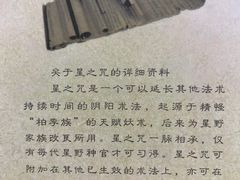 关于星之咒的详细资料
星之咒是一个可以延长其他法术
持续时间的阴阳术法，起源于精怪
“柏季族”的天赋妖术，后来为星野
家族改良所用。星之咒一脉相承，仅
有每代星野神官才可习得。星之咒可
附加在其他已生效的术法上，亦可在